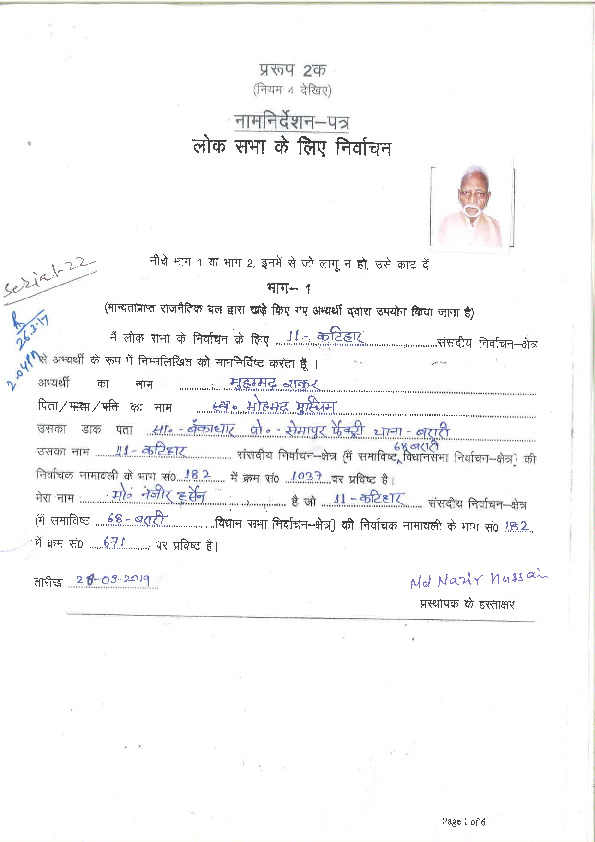 प्ररूप 2क
(नियम 4 देखिए)
नामनिर्देशन-पत्र
लोक सभा के लिए निर्वाचन
नीचे भाग 1 या भाग 2, इनमें से जो लागू न हो, उसे काट दें
Serial-22
भाग- 1
(मान्यताप्राप्त राजनैतिक दल द्वारा खड़े किए गए अभ्यर्थी द्वारा उपयोग किया जाना है)
मैं लोक सभा के निर्वाचन के लिए 11- कटिहार संसदीय निर्वाचन-क्षेत्र
से अभ्यर्थी के रूप में निम्नलिखित को नामनिर्दिष्ट करता हूँ ।
अभ्यर्थी का नाम मुहम्मद शकुर
पिता/माता/पति का नाम स्व० मोहमद मुस्लिम
उसका डाक पता सा०- बैंकाधार पो०- सेमापुर फैक्ट्री थाना- बरारी
उसका नाम 11- कटिहार संसदीय निर्वाचन-क्षेत्र (में समाविष्ट 68 बरारी विधानसभा निर्वाचन-क्षेत्र) की
निर्वाचक नामावली के भाग सं0 182 में क्रम सं0 1037 पर प्रविष्ट है।
मेरा नाम मो० नजीर हुसैन है जो 11- कटिहार संसदीय निर्वाचन-क्षेत्र
(में समाविष्ट 68- बरारी विधान सभा निर्वाचन-क्षेत्र) की निर्वाचक नामावली के भाग सं0 182
में क्रम सं0 671 पर प्रविष्ट है।
तारीख 26-03-2019
Md Nazir Hussain
प्रस्थापक के हस्ताक्षर
Page 1 of 6